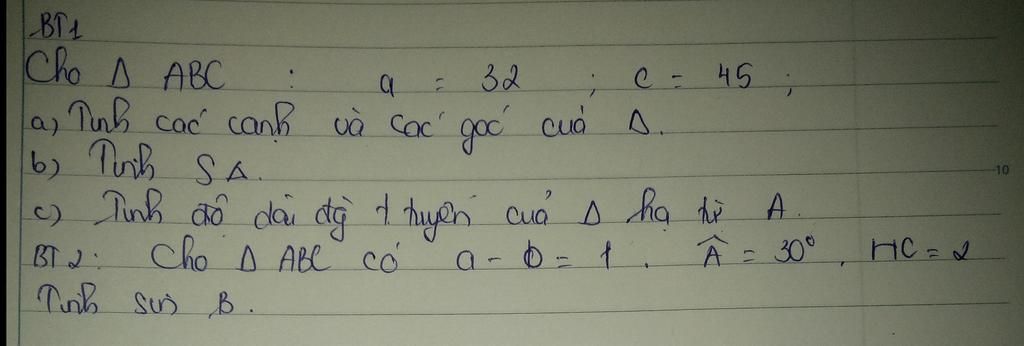 BT1
Cho Δ ABC : a = 32 ; c = 45 ;
a) Tính các cạnh và các góc của Δ.
b) Tính S Δ.
c) Tính độ dài đg t tuyến của Δ hạ từ A.
10
BT2: Cho Δ ABC có a - b = 1. Â = 30°, HC = 2
Tính sin B.